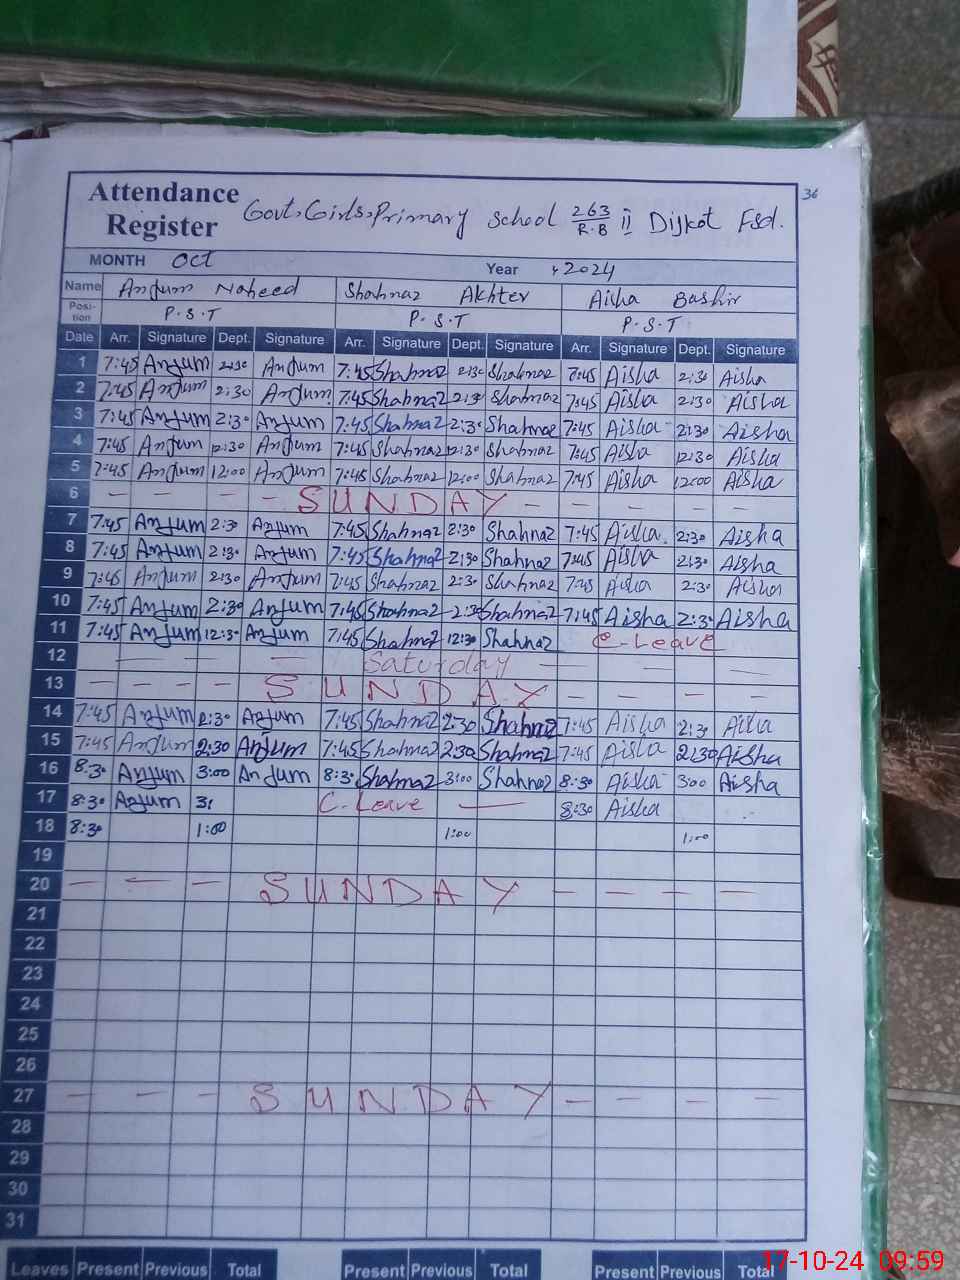 36
Attendance Register Govt, Girls, Primary School 263/R.B ii Dijkot Fsd.
MONTH Oct Year 2024
Name Anjum Naheed Shahnaz Akhter Aisha Bashir
Position P.S.T P.S.T P.S.T
Date Arr. Signature Dept. Signature Arr. Signature Dept. Signature Arr. Signature Dept. Signature
1 7:45 Anjum 2:30 Anjum 7:45 Shahnaz 2:30 Shahnaz 7:45 Aisha 2:30 Aisha
2 7:45 Anjum 2:30 Anjum 7:45 Shahnaz 2:30 Shahnaz 7:45 Aisha 2:30 Aisha
3 7:45 Anjum 2:30 Anjum 7:45 Shahnaz 2:30 Shahnaz 7:45 Aisha 2:30 Aisha
4 7:45 Anjum 12:30 Anjum 7:45 Shahnaz 12:30 Shahnaz 7:45 Aisha 12:30 Aisha
5 7:45 Anjum 12:00 Anjum 7:45 Shahnaz 12:00 Shahnaz 7:45 Aisha 12:00 Aisha
6 - - - - SUNDAY - - - - -
7 7:45 Anjum 2:30 Anjum 7:45 Shahnaz 2:30 Shahnaz 7:45 Aisha 2:30 Aisha
8 7:45 Anjum 2:30 Anjum 7:45 Shahnaz 2:30 Shahnaz 7:45 Aisha 2:30 Aisha
9 7:45 Anjum 2:30 Anjum 7:45 Shahnaz 2:30 Shahnaz 7:45 Aisha 2:30 Aisha
10 7:45 Anjum 2:30 Anjum 7:45 Shahnaz 2:30 Shahnaz 7:45 Aisha 2:30 Aisha
11 7:45 Anjum 12:30 Anjum 7:45 Shahnaz 12:30 Shahnaz C-Leave
12 - - - - Saturday - - - -
13 - - - - SUNDAY - - - -
14 7:45 Anjum 2:30 Anjum 7:45 Shahnaz 2:30 Shahnaz 7:45 Aisha 2:30 Aisha
15 7:45 Anjum 2:30 Anjum 7:45 Shahnaz 2:30 Shahnaz 7:45 Aisha 2:30 Aisha
16 8:30 Anjum 3:00 Anjum 8:30 Shahnaz 3:00 Shahnaz 8:30 Aisha 3:00 Aisha
17 8:30 Anjum C. Leave — 8:30 Aisha
18 8:30 1:00 1:00 1:00
19
20 - - - SUNDAY - - - - -
21
22
23
24
25
26
27 - - - SUNDAY - - - - -
28
29
30
31
Leaves Present Previous Total Present Previous Total Present Previous Total
17-10-24 09:59